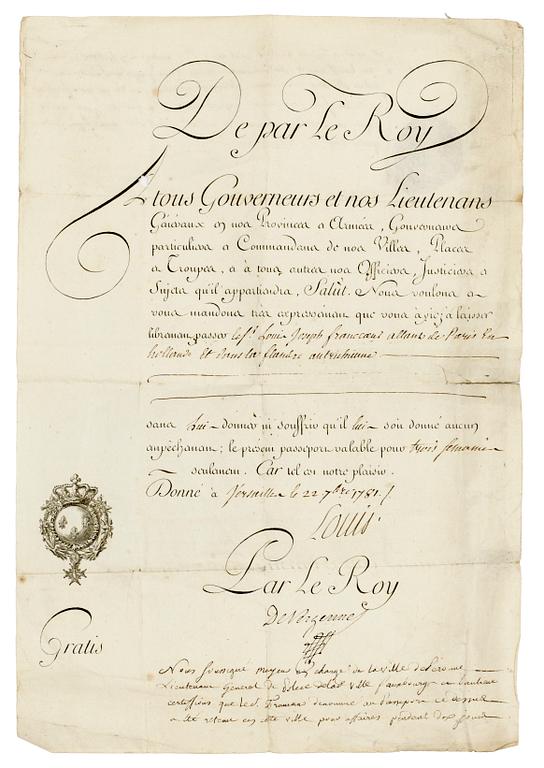 De par Le Roy
A tous Gouverneurs et nos Lieutenans
Généraux en nos Provinces & Armées, Gouverneurs
particuliers & Commandans de nos Villes, Places
& Troupes, & à tous autres nos Officiers, Justiciers &
Sujets qu'il appartiendra, Salut. Nous voulons &
vous mandons très expressément que vous ayiez à laisser
librement passer le Sr. Louis Joseph francoeur allant de Paris en
hollande et dans la flandre autrichienne
sans lui donner ni souffrir qu'il lui soit donné aucun
empêchement; le présent passeport valable pour trois semaines
seulement. Car tel est notre plaisir.
Donné à Versailles le 22 7bre 1781.
Louis.
Par Le Roy
De Vergennes
Gratis
Nous soussigné mayeur en charge de la ville de Péronne
Lieutenant General de Police de lad. ville fauxbourgs et banlieue
certiffions que le S. francoeur denommé au Passeport ce dessus
a été retenu en cette ville pour affaires pendant dix jours